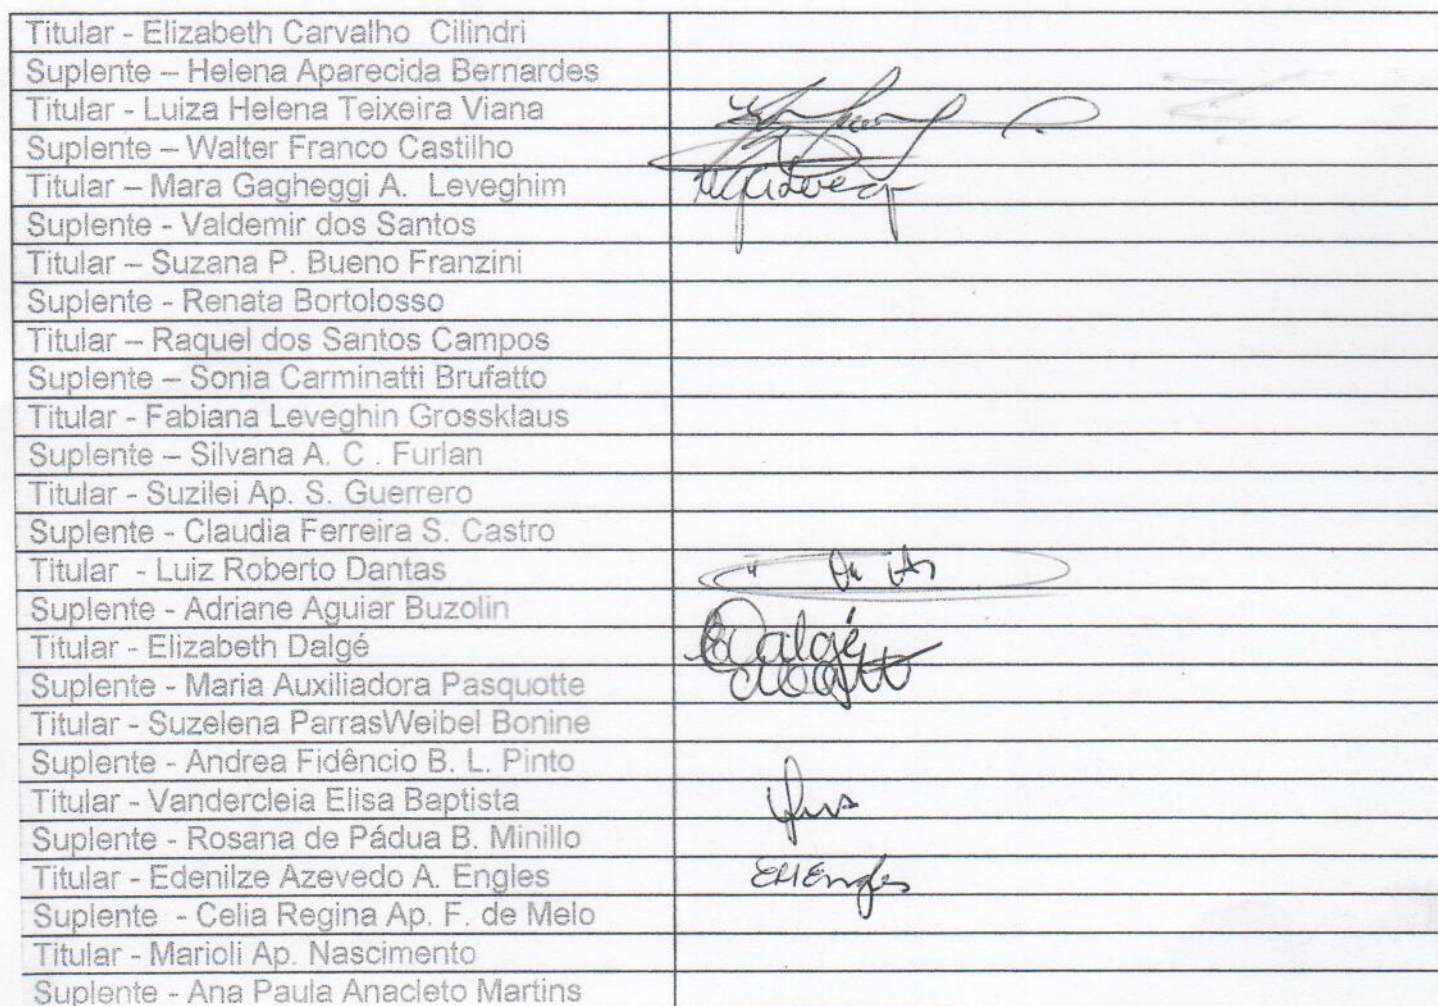 Titular - Elizabeth Carvalho Cilindri
Suplente – Helena Aparecida Bernardes
Titular - Luiza Helena Teixeira Viana
Suplente – Walter Franco Castilho
Titular – Mara Gagheggi A. Leveghim
Suplente - Valdemir dos Santos
Titular – Suzana P. Bueno Franzini
Suplente - Renata Bortolosso
Titular – Raquel dos Santos Campos
Suplente – Sonia Carminatti Brufatto
Titular - Fabiana Leveghin Grossklaus
Suplente – Silvana A. C . Furlan
Titular - Suzilei Ap. S. Guerrero
Suplente - Claudia Ferreira S. Castro
Titular - Luiz Roberto Dantas
Suplente - Adriane Aguiar Buzolin
Titular - Elizabeth Dalgé EDalgé
Suplente - Maria Auxiliadora Pasquotte
Titular - Suzelena ParrasWeibel Bonine
Suplente - Andrea Fidêncio B. L. Pinto
Titular - Vandercleia Elisa Baptista
Suplente - Rosana de Pádua B. Minillo
Titular - Edenilze Azevedo A. Engles
Suplente - Celia Regina Ap. F. de Melo
Titular - Marioli Ap. Nascimento
Suplente - Ana Paula Anacleto Martins